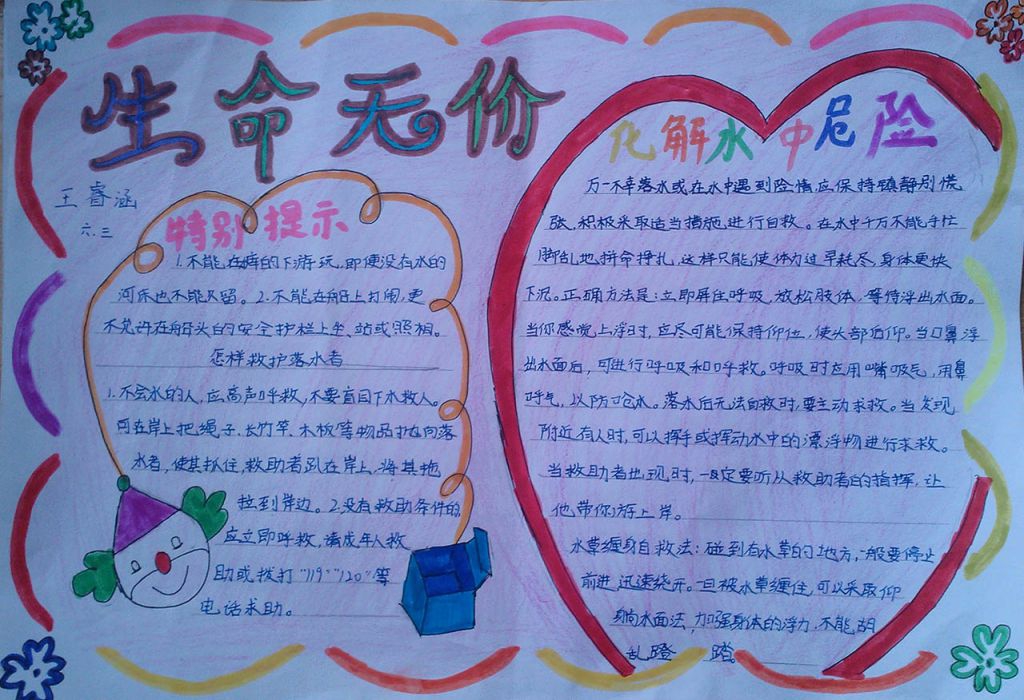 生命无价
王睿涵
六.三
特别提示
1.不能在库的下游玩,即便没有水的
河床也不能久留。2.不能在船上打闹,更
不允许在船头的安全护栏上坐、站或照相。
怎样救护落水者
1.不会水的人,应高声呼救,不要盲目下水救人。
可在岸上把绳子、长竹竿、木板等物品抛向落
水者,使其抓住,救助者趴在岸上,将其拖
拉到岸边。2.没有救助条件的
应立即呼救,请成年人救
助或拨打"119""120"等
电话求助。
化解水中危险
万一不幸落水或在水中遇到险情,应保持镇静别慌
张,积极采取适当措施,进行自救。在水中千万不能手忙
脚乱地拼命挣扎,这样只能使体力过早耗尽,身体更快
下沉。正确方法是:立即屏住呼吸,放松肢体,等待浮出水面。
当你感觉上浮时,应尽可能保持仰位,使头部后仰。当口鼻浮
出水面后,可进行呼吸和呼救。呼吸时应用嘴吸气,用鼻
呼气,以防呛水。落水后无法自救时,要主动求救。当发现
附近有人时,可以挥手或挥动水中的漂浮物进行求救。
当救助者出现时,一定要听从救助者的指挥,让
他带你游上岸。
水草缠身自救法:碰到有水草的地方,一般要停止
前进,迅速绕开。一旦被水草缠住,可以采取仰
躺水面法,加强身体的浮力,不能胡
乱蹬踏。